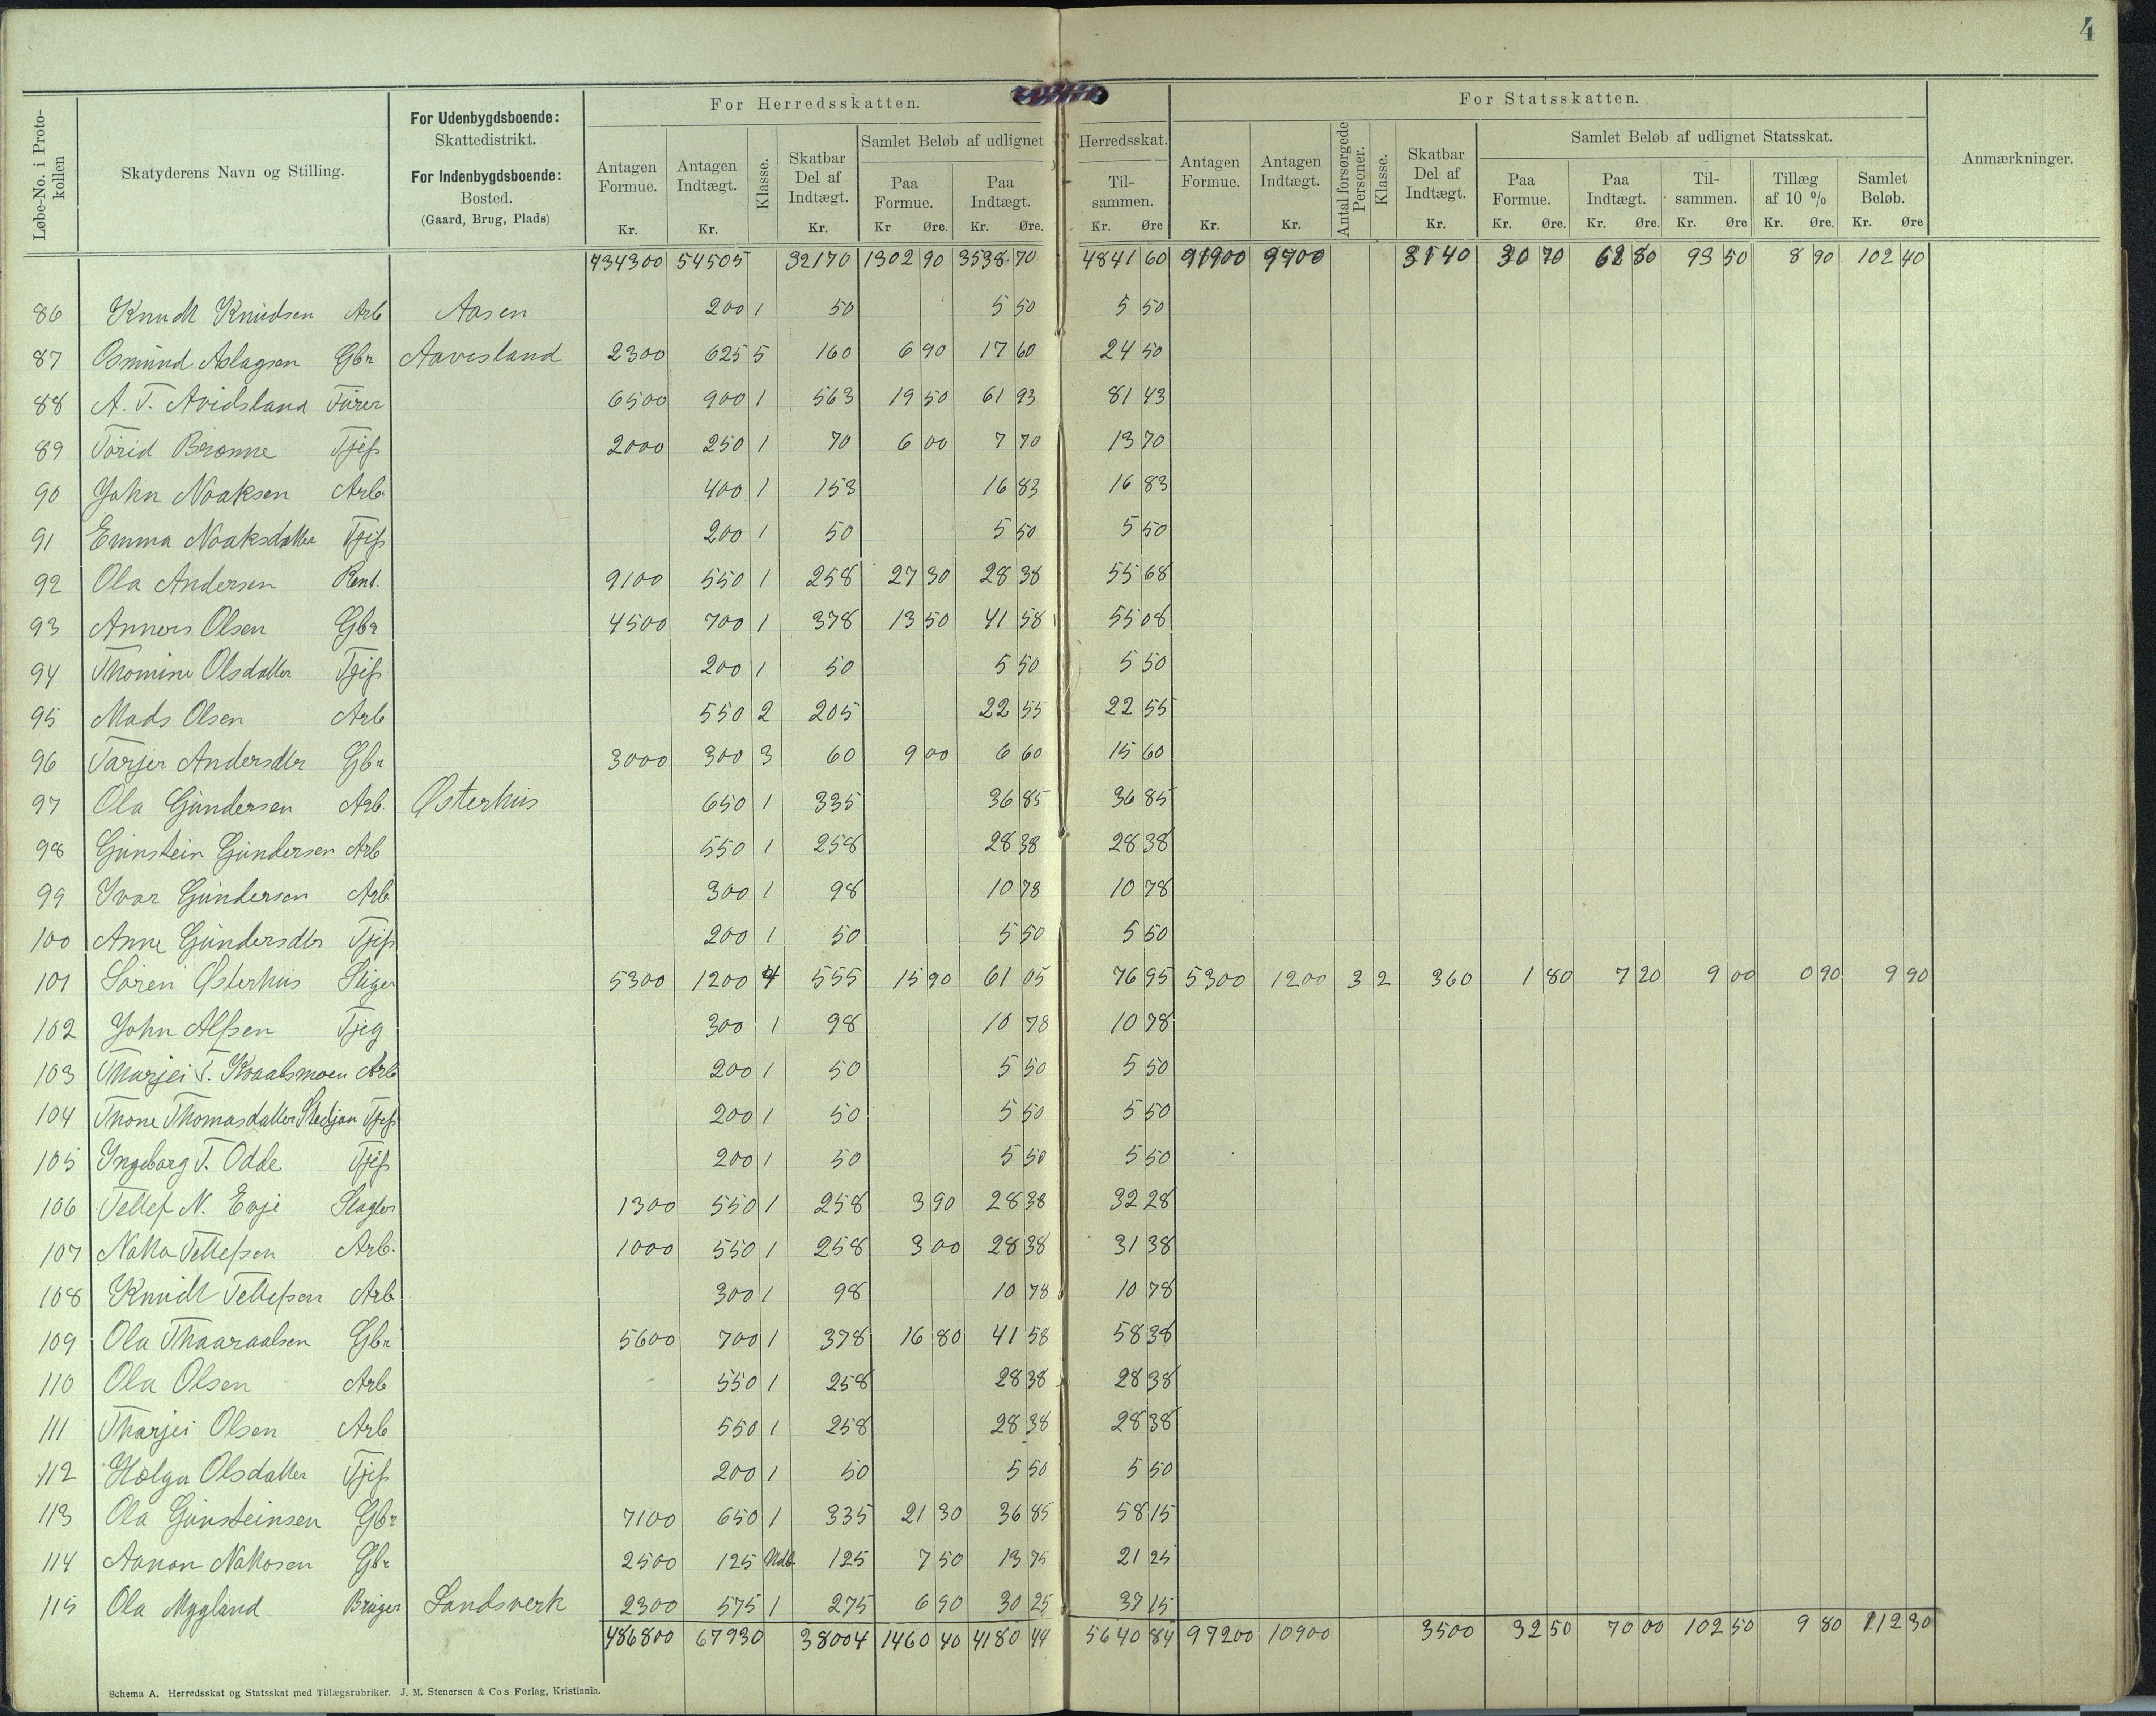 4
Løbe-No. i Protokollen
Skatyderens Navn og Stilling.
For Udenbygdsboende:
Skattedistrikt.
For Indenbygdsboende:
Bosted.
(Gaard, Brug, Plads)
For Herredsskatten.
Antagen Formue. Kr.
Antagen Indtægt. Kr.
Klasse.
Skatbar Del af Indtægt. Kr.
Samlet Beløb af udlignet Herredsskat.
Paa Formue. Kr Øre.
Paa Indtægt. Kr. Øre.
Til-sammen. Kr. Øre
For Statsskatten.
Antagen Formue. Kr.
Antagen Indtægt. Kr.
Antal forsørgede Personer.
Klasse.
Skatbar Del af Indtægt. Kr.
Samlet Beløb af udlignet Statsskat.
Paa Formue. Kr. Øre.
Paa Indtægt. Kr. Øre.
Til-sammen. Kr. Øre
Tillæg af 10 % Kr. Øre.
Samlet Beløb. Kr. Øre
Anmærkninger.
434300 54505 32170 1302 90 3538 70 4841 60 91900 9700 3140 30 70 62 80 93 50 8 90 102 40
86 Knudt Knudsen Arb Aasen 200 1 50 5 50 5 50
87 Osmund Aslagsen Gbr Aavesland 2300 625 5 160 6 90 17 60 24 50
88 A. T. Avidsland Furer 6500 900 1 563 19 50 61 93 81 43
89 Torid Brønne Tjep 2000 250 1 70 6 00 7 70 13 70
90 John Noaksen Arb. 400 1 153 16 83 16 83
91 Emma Noaksdatter Tjep 200 1 50 5 50 5 50
92 Ola Andersen Rent. 9100 550 1 258 27 30 28 38 55 68
93 Anners Olsen Gbr 4500 700 1 378 13 50 41 58 55 08
94 Thomine Olsdatter Tjep 200 1 50 5 50 5 50
95 Mads Olsen Arb 550 2 205 22 55 22 55
96 Tarjer Andersdtr Gbr 3000 300 3 60 9 00 6 60 15 60
97 Ola Gundersen Arb. Østerhus 650 1 335 36 85 36 85
98 Gunstein Gundersen Arb 550 1 258 28 38 28 38
99 Ivar Gundersen Arb 300 1 98 10 78 10 78
100 Anne Gundersdtr Tjep 200 1 50 5 50 5 50
101 Søren Østerhus Stiger 5300 1200 4 555 15 90 61 05 76 95 5300 1200 3 2 360 1 80 7 20 9 00 0 90 9 90
102 John Alfsen Tjeg 300 1 98 10 78 10 78
103 Tharjei T. Kvaalsmoen Arb 200 1 50 5 50 5 50
104 Thone Thomasdatter Tjep 200 1 50 5 50 5 50
105 Ingeborg T. Odde Tjep 200 1 50 5 50 5 50
106 Tellef N. Evje Slagter 1300 550 1 258 3 90 28 38 32 28
107 Nakka Tellefsen Arb. 1000 550 1 258 3 00 28 38 31 38
108 Knudt Tellefsen Arb 300 1 98 10 78 10 78
109 Ola Thaaraalsen Gbr 5600 700 1 378 16 80 41 58 58 38
110 Ola Olsen Arb 550 1 258 28 38 28 38
111 Tharjei Olsen Arb 550 1 258 28 38 28 38
112 Hølga Olsdatter Tjep 200 1 50 5 50 5 50
113 Ola Gunsteinsen Gbr 7100 650 1 335 21 30 36 85 58 15
114 Aanon Nakosen Gbr 2500 125 Udb 125 7 50 13 75 21 25
115 Ola Mygland Bruger Landsverk 2300 575 1 275 6 90 30 25 37 15
486800 67930 38004 1460 40 4180 44 5640 84 97200 10900 3500 32 50 70 00 102 50 9 80 112 30
Schema A. Herredsskat og Statsskat med Tillægsrubriker. J. M. Stenersen & Co s Forlag, Kristiania.